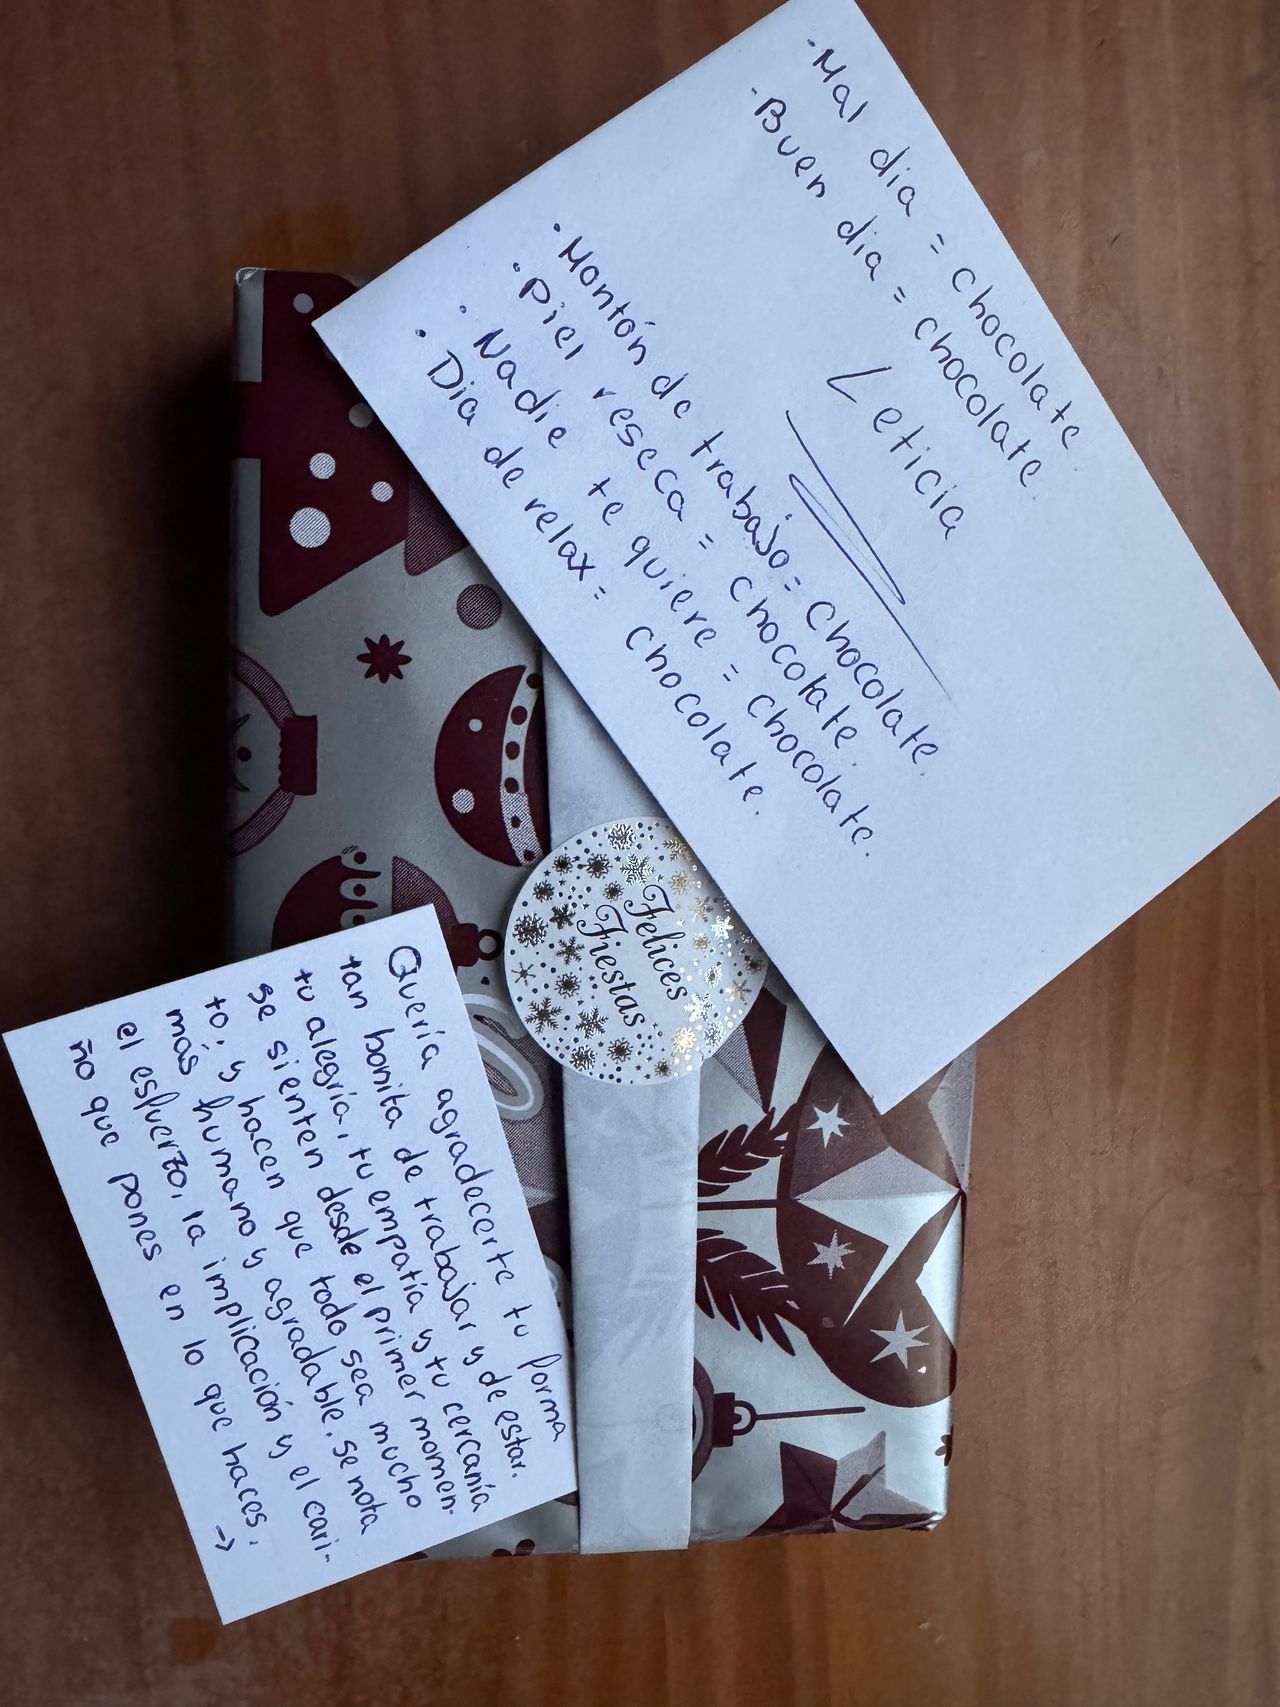 · Mal dia = chocolate
· Buen dia = chocolate.
Leticia
· Montón de trabajo = chocolate.
· Piel reseca = chocolate.
· Nadie te quiere = chocolate.
· Dia de relax = chocolate.
Felices
Fiestas
Quería agradecerte tu forma
tan bonita de trabajar y de estar.
tu alegría, tu empatía y tu cercanía
se sienten desde el primer momen-
to, y hacen que todo sea mucho
más humano y agradable. Se nota
el esfuerzo, la implicación y el cari-
ño que pones en lo que haces.
→